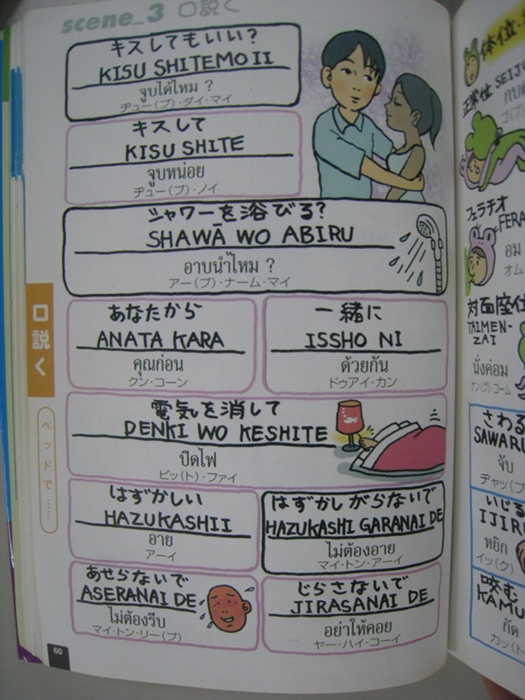 scene_3 口説く
キスしてもいい?
KISU SHITEMO II
จูบได้ไหม ?
ヂュー(プ)・ダイ・マイ
キスして
KISU SHITE
จูบหน่อย
ヂュー(プ)・ノイ
シャワーを浴びる?
SHAWĀ WO ABIRU
อาบน้ำไหม ?
アー(プ)・ナーム・マイ
あなたから
ANATA KARA
คุณก่อน
クン・コーン
一緒に
ISSHO NI
ด้วยกัน
ドゥアイ・カン
電気を消して
DENKI WO KESHITE
ปิดไฟ
ピッ(ト)・ファイ
はずかしい
HAZUKASHII
อาย
アーイ
はずかしがらないで
HAZUKASHI GARANAI DE
ไม่ต้องอาย
マイ・トン・アーイ
あせらないで
ASERANAI DE
ไม่ต้องรีบ
マイ・トン・リー(プ)
じらさないで
JIRASANAI DE
อย่าให้คอย
ヤー・ハイ・コーイ
口説く
ベッドで……
60
体位
正常位 SEIJO
フェラチオ
FERA
อม
オム
対面座位
TAIMEN-
ZAI
นั่งค่อม
さわる
SAWARU
จับ
ヂャッ(プ)
いじる
IJIR
หยิก
イッ(ク)
咬む
KAMU
กัด
カッ(ト)